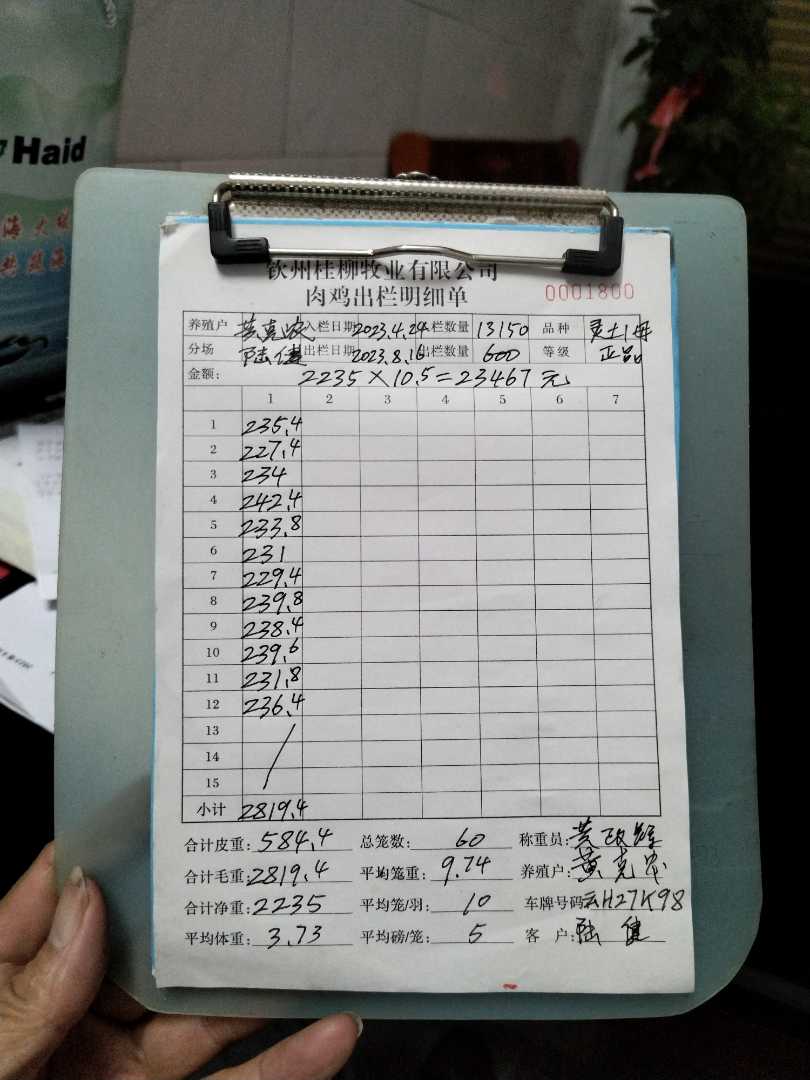 Haid
海大
钦州桂柳牧业有限公司
肉鸡出栏明细单 0001800
养殖户 黄克 入栏日期 2023.4.24 出栏数量 13150 品种 灵土1母
分场 陆健 出栏日期 2023.8.16 出栏数量 600 等级 正品
金额: 2235×10.5=23467元
1 2 3 4 5 6 7
1 235.4
2 227.4
3 234
4 242.4
5 233.8
6 231
7 229.4
8 239.8
9 238.4
10 239.6
11 231.8
12 236.4
13
14
15
小计 2819.4
合计皮重: 584.4 总笼数: 60 称重员: 黄
合计毛重: 2819.4 平均笼重: 9.74 养殖户: 黄克
合计净重: 2235 平均笼/羽: 10 车牌号码 云H27K98
平均体重: 3.73 平均磅/笼: 5 客 户: 陆健